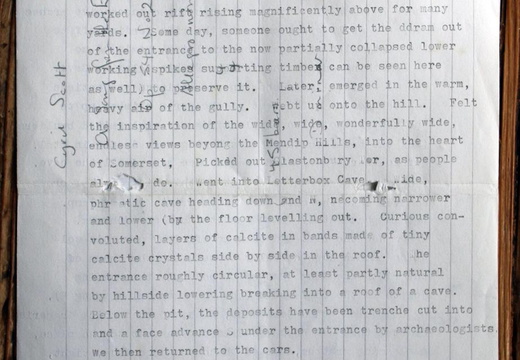 worked out rift rising magnificently above for many
yards. Some day, someone ought to get the ddram out
of the entrance to the now partially collapsed lower
working (spikes supporting timber can be seen here
as well) to preserve it. Later, emerged in the warm,
heavy air of the gully. up onto the hill. Felt
the inspiration of the wide, wide, wonderfully wide,
endless views beyong the Mendip Hills, into the heart
of Somerset. Picked out Glastonbury Tor, as people
always do. Went into Letterbox Cave
phreatic cave heading down and N, necoming narrower
and lower (by the floor levelling out. Curious con-
voluted, layers of calcite in bands made of tiny
calcite crystals side by side in the roof. The
entrance roughly circular, at least partly natural
by hillside lowering breaking into a roof of a cave.
Below the pit, the deposits have been trenche cut into
and a face advance under the entrance by archaeologists.
We then returned to the cars.
Cyril Scott